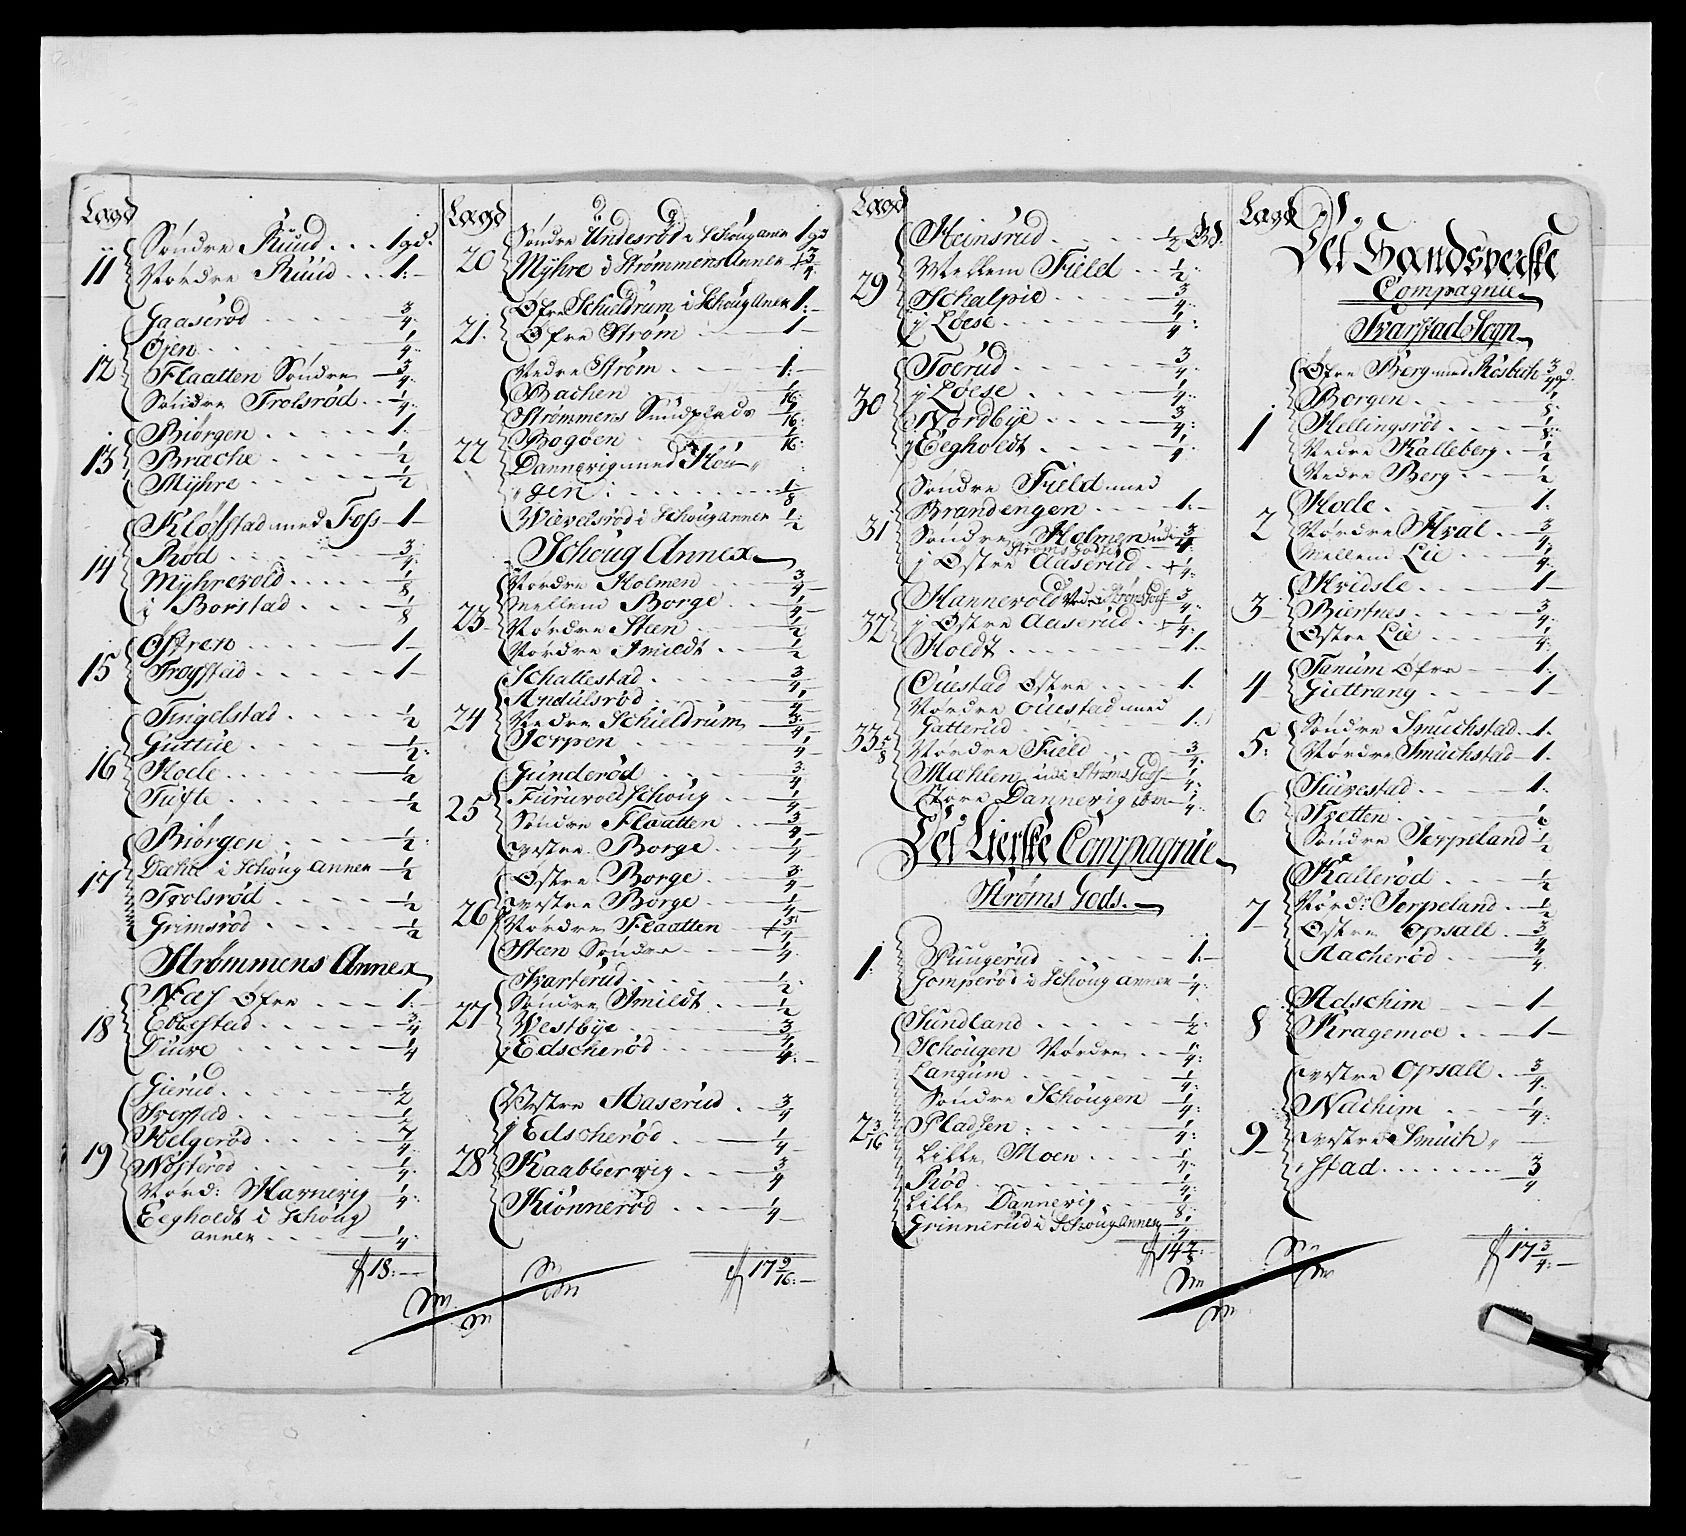 Lægd
11
Søndre Ruud - - - 1 gd.
Nordre Ruud - - - 1:-
12
Gaaserød - - - 3/4
Øjen - - - 1/4
Flaatten Søndre - 3/4
Søndre Trolsrød - - 1/4
13
Biørgen - - - 1
Brache - - - 1/2
Mÿhre - - - 1/2
14
Kløfstad med Foss - 1 -
Rød - - - 3/4
Mÿhrevold - - - 1/8
i Borstad - - - 1/8
15
Østren - - - 1 -
Trogstad - - - 1 -
16
Tingelstad - - - 1/2
Guttue - - - 1/2
Hoele - - - 1/2
Tufte - - - 1/2
17
Biørgen - - - 1/2
Dahle i Schoug annex - 1/2
Trolsrød - - - 1/2
Grimsrød - - - 1/2
Strømmens Annex
18
Næs Øfre - - - 1 -
Ebbestad - - - 3/4
Duve - - - 1/4
19
Gierud - - - 1/2
Sverstad - - - 1/2
Helgerød - - - 1/4
Nøsterød - - - 1/4
Nord: Marnevig - 1/4
Eegholdt i Schoug
annex - - - 1/4
18:-
Lægd
20
Søndre Undesrød i Schoug annex 1 gd
Mÿhre i Strømmens Annex 3/4
21.
Øfre Schieldrum i Schoug Anex 1:-
Øfre Strøm - - - 1 -
22
Nedre Strøm - - - 1:-
Bachen - - - 1/16
Strømmens Sundplads 1/16
Bogøen - - - 1/16
Dannevig med Høu-
gen - - - 1/8
Wievelsrød i Schoug annex 1/2
Schoug Annex
23
Nordre Holmen - - - 3/4
Mellem Borge - - - 1/4
Nordre Steen - - - 1/2
Nordre Smiedt - - 1/2
24
Schallestad - - - 3/4
Andulsrød - - - 1/4
Nedre Schieldrum - 3/4
Jerpen - - - 1/4
25
Gunderød - - - 3/4
Furuvold Schoug - - 1/4
Søndre Flaatten - - 3/4
vestre Borge - - - 1/4
26
Østre Borge - - - 3/4
vestre Borge - - - 1/4
Nordre Flaatten - 3/4
Steen Søndre - - 1/4
27
Svarterud - - - 1/2
Søndre Smiedt - - 1/2
Westbÿe - - - 3/4
i Edscherød - - - 1/4
28
Westre Aaserud - 3/4
i Edscherød - - - 1/4
Kaabbervig - - - 3/4
Kiønnerød - - - 1/4
17 9/16:-
Lægd
29
Steinsrud - - - 1/2 Gd.
Mellem Field - - 1/2
Schalpie - - - 3/4
i Løese - - - 1/4
30
Toerud - - - 3/4
i Løese - - - 1/4
Nordbÿe - - - 3/4
i Eegholdt - - - 1/4
31
Søndre Field med
Brandengen - - - 1:-
Søndre Holmen udi 3/4
Strøms Gods
i Østre Aaserud - 1/4
32
Hannevold Nedre Strøms Gods 3/4
i Østre Aaserud - 1/4
Holdt - - - 1
33 5/8
Ouestad Østre - - - 1
Nordre Ouestad med
Gatterud - - - 1
Nordre Field - - - 3/4
Mæhlen udi Strøms Gods - 1/4
Store Dannevig - 1/4
Det Lierske Compagnie
Strøms Gods.
1.
Pungerud - - - 1:-
Gomperød i Schoug annex 1/4
2 3/16
Sundland - - - 1/2
Schougen Nordre - - 1/4
Langum - - - 1/4
Søndre Schougen 1/4
Pladsen - - - 1/4
Lille Moen - - - 1/4
Rød - - - 1/4
Lille Dannevig - - 1/8
Grinnerud i Schoug annex 1/4
14 7/8:
Lægd
Det Sandsverske
Compagnie
Svarstad Sogn
1
Øfre Berg med Røsbech 3/4 gd.
Borgen - - - 1/8
Hellingsrød - - 1/8
Nedre Kalleberg - 1/2
Nedre Berg - - 1/2
2
Hoele - - - 1
Nordre Hval - - 3/4
Mellem Lie - - 1/4
3
Hvidsle - - - 1 -
Biertnes - - - 3/4
Østre Lie - - - 1/4
4
Tanum Øfre - - 1
Giettrang - - - 1 -
5:
Søndre Smuchstad - 1.
Nordre Smuchstad - 1.
6
Tuvestad - - - 1
Tvetten - - - 1/2
Søndre Jerpeland 1/2
7
Kallerød - - - 1/2
Nord: Jerpeland - 1/2
Østre Opsall - - 3/4
Aacherød - - - 1/4
8
Adschim - - - 1 -
Kragemoe - - - 1 -
9
vestre Opsall - - 3/4
Nachim - - - 1/4
vestre Smuch-
stad - - - 3/4
17 3/4:-